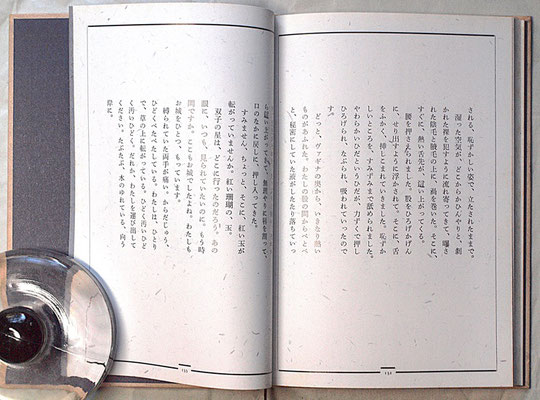 される、恥ずかしい姿で、立たされたままで。
湿った空気が、どこからかひんやりと、剥
かれた裸を犯すように流れ寄ってきて、曝さ
れた陰毛と腋毛の上に、渦を巻いた。そこに、
すぐに、熱い舌先が、這い上がってくる。
腰を押さえられました。股をひろげかげん
に、せり出すように浮かされて。そこに、舌
をふかく、挿しこまれていきました。恥ずか
しいところを、すみずみまで舐められました。
やわらかいひだというひだが、力ずくで押し
ひろげられ、たぶられ、吸われていったので
す。
どっと、ヴァギナの奥から、いきなり熱い
ものがあふれた。わたしの股の間からべとべ
と、秘密にしていた液がしたたり落ちていっ
ら這い上がって
口のなかに戻しに、押し入ってきた。
すみません、ちょっと、そこに、紅い玉が
転がっていませんか。紅い珊瑚の、玉。
双子の星は、どこに行ったのだろう。あの
眼に、いつも、見られていたいのに。もう時
間ですか。ここもお城でしたよね。わたしも
お城をひとつ、もっています。
縛られていた両手が痛い。からだじゅう、
ひどくべたべたしている。わたしは、ひとり
で、草の上に転がっている。ひどく汚いひど
く汚いひどく。だれか、わたしを運び出して
ください。たぷたぷ、水のゆれている、向う
岸に。